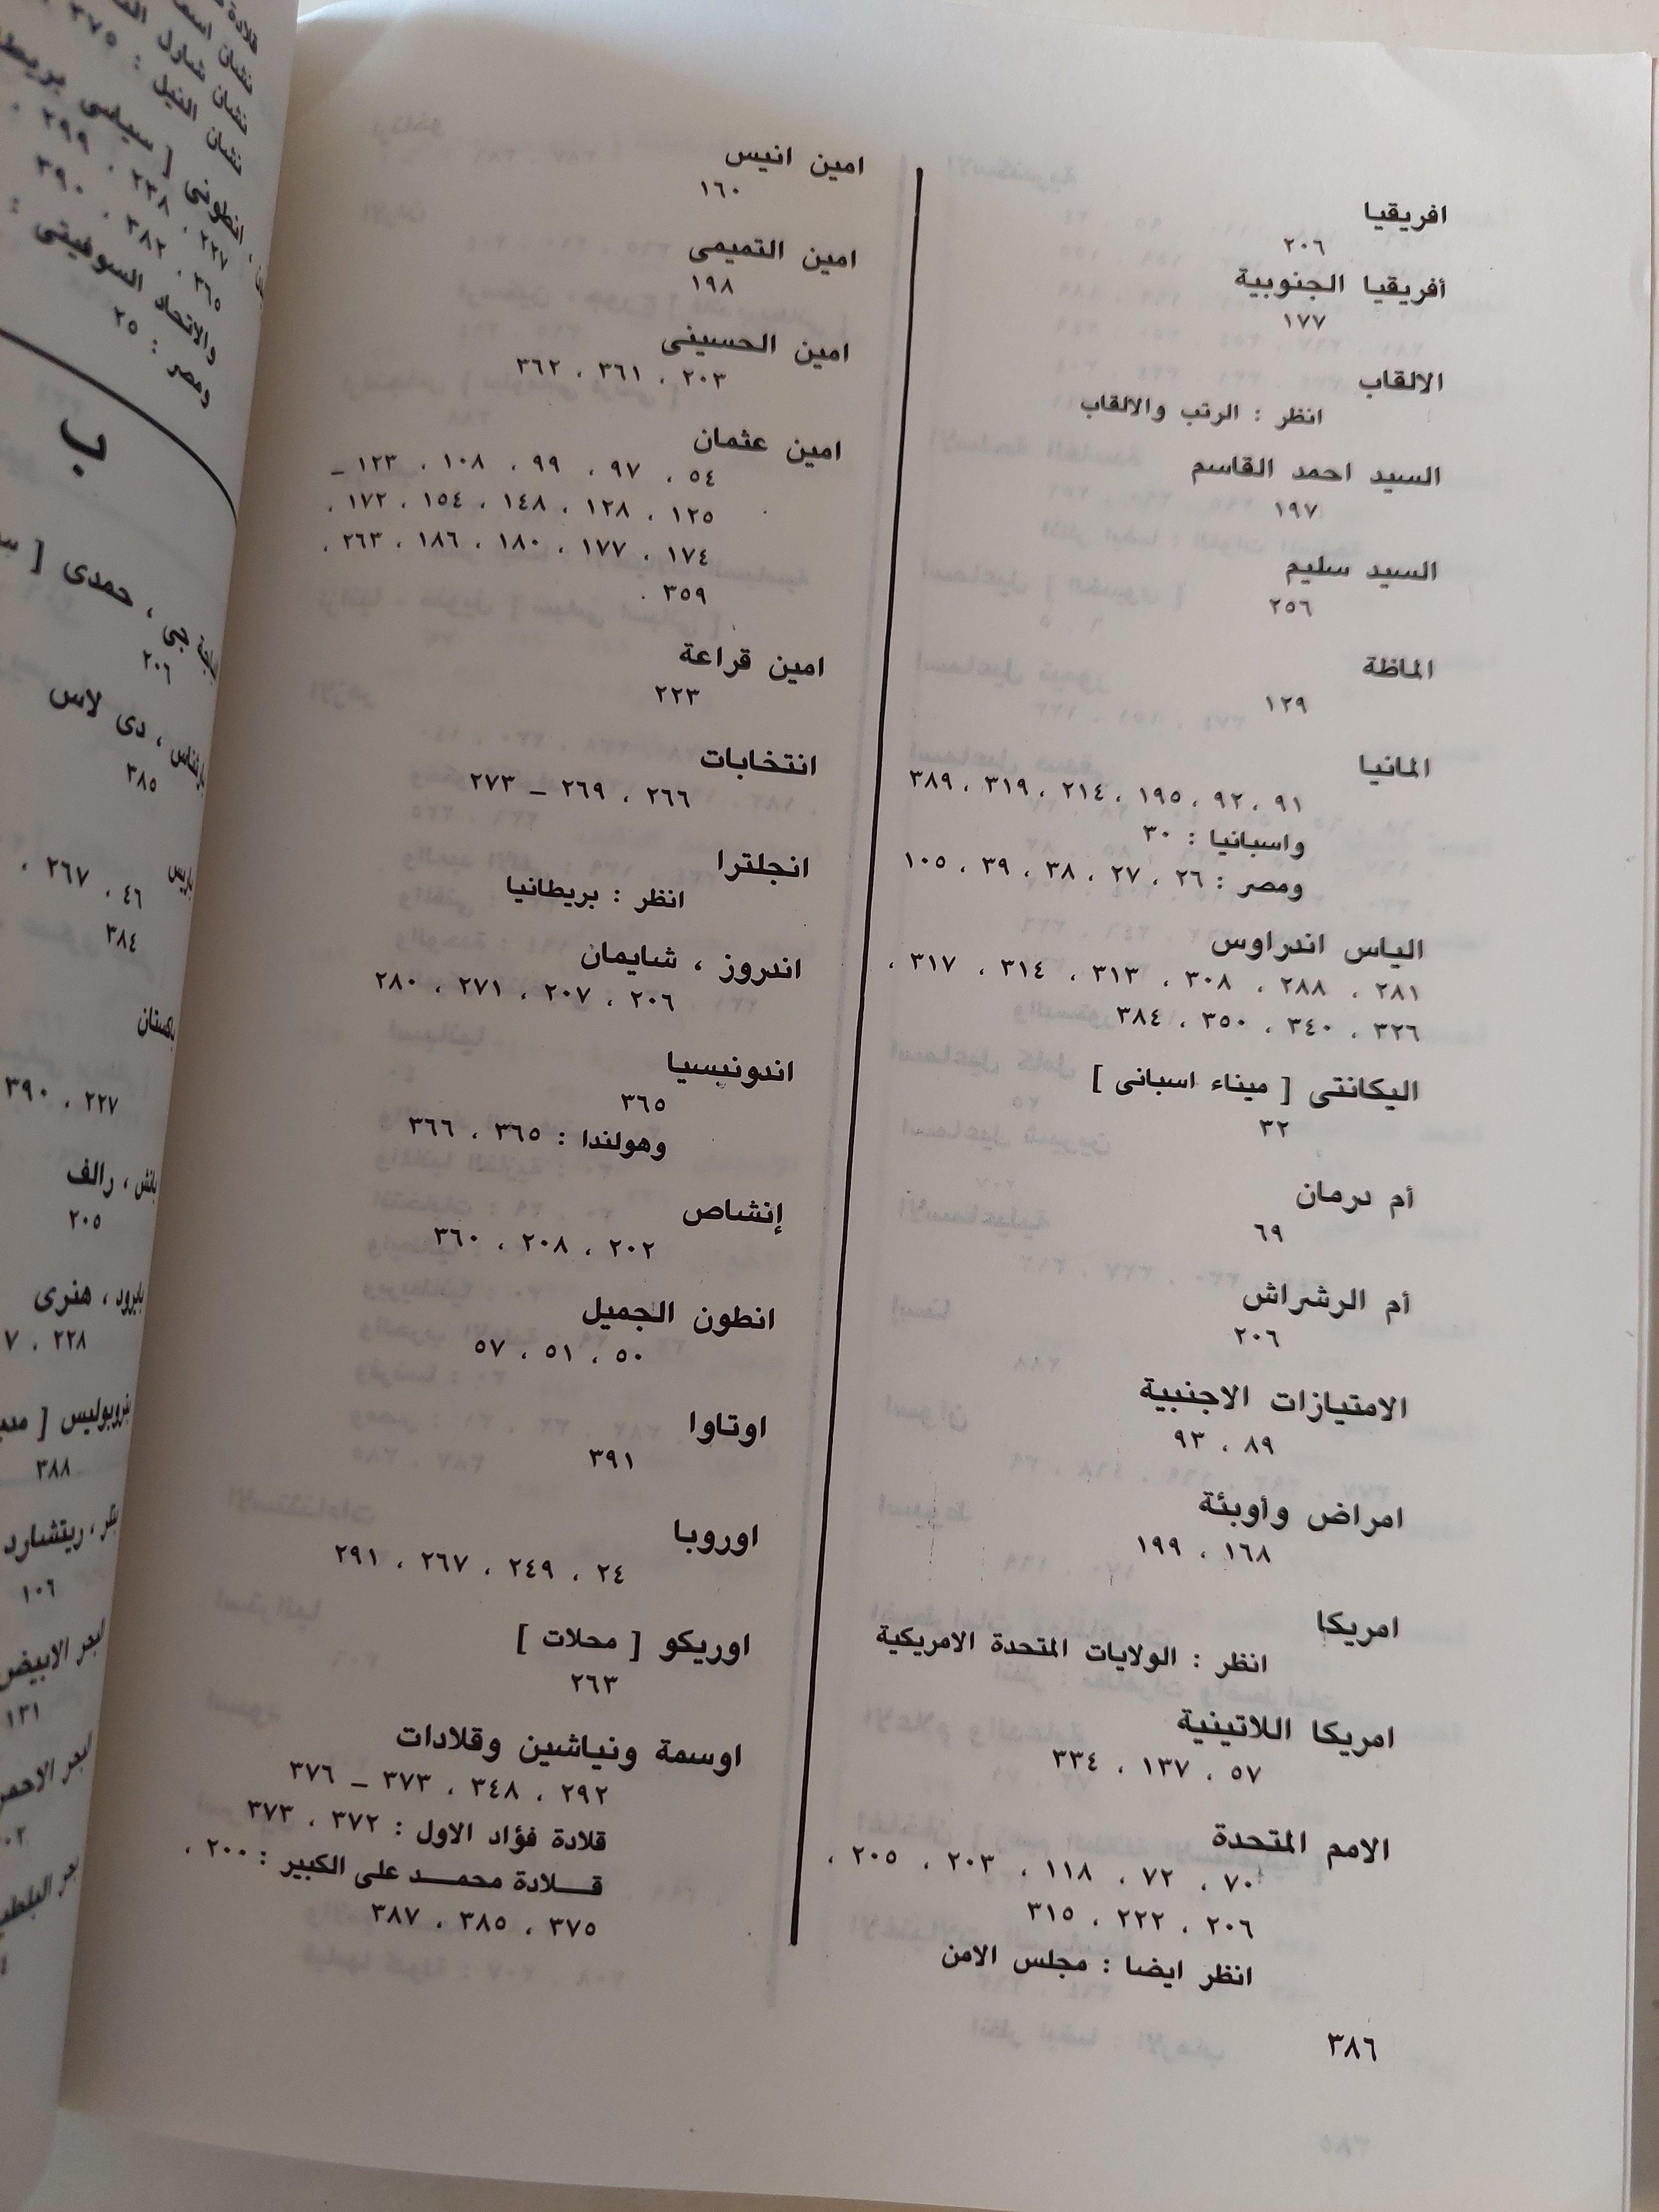 افريقيا
٢٠٦
أفريقيا الجنوبية
١٧٧
الالقاب
انظر : الرتب والالقاب
السيد احمد القاسم
١٩٧
السيد سليم
٢٥٦
الماظة
١٢٩
المانيا
٩١ ، ٩٢ ، ١٩٥ ، ٢١٤ ، ٣١٩ ، ٣٨٩
واسبانيا : ٣٠
ومصر : ٢٦ ، ٢٧ ، ٣٨ ، ٣٩ ، ١٠٥
الياس اندراوس
٢٨١ ، ٢٨٨ ، ٣٠٨ ، ٣١٣ ، ٣١٤ ، ٣١٧ ،
٣٢٦ ، ٣٤٠ ، ٣٥٠ ، ٣٨٤
اليكانتى [ ميناء اسبانى ]
٣٢
أم درمان
٦٩
أم الرشراش
٢٠٦
الامتيازات الاجنبية
٨٩ ، ٩٣
امراض وأوبئة
١٦٨ ، ١٩٩
امريكا
انظر : الولايات المتحدة الامريكية
امريكا اللاتينية
٥٧ ، ١٣٧ ، ٣٣٤
الامم المتحدة
٧٠ ، ٧٢ ، ١١٨ ، ٢٠٣ ، ٢٠٥ ،
٢٠٦ ، ٢٢٢ ، ٣١٥
انظر ايضا : مجلس الامن
امين انيس
١٦٠
امين التميمى
١٩٨
امين الحسينى
٢٠٣ ، ٣٦١ ، ٣٦٢
امين عثمان
٥٤ ، ٩٧ ، ٩٩ ، ١٠٨ ، ١٢٣ –
١٢٥ ، ١٢٨ ، ١٤٨ ، ١٥٤ ، ١٧٢ ،
١٧٤ ، ١٧٧ ، ١٨٠ ، ١٨٦ ، ٢٦٣ ،
٣٥٩ .
امين قراعة
٢٢٣
انتخابات
٢٦٦ ، ٢٦٩ – ٢٧٣
انجلترا
انظر : بريطانيا
اندروز ، شايمان
٢٠٦ ، ٢٠٧ ، ٢٧١ ، ٢٨٠
اندونيسيا
٣٦٥
وهولندا : ٣٦٥ ، ٣٦٦
إنشاص
٢٠٢ ، ٢٠٨ ، ٣٦٠
انطون الجميل
٥٠ ، ٥١ ، ٥٧
اوتاوا
٣٩١
اوروبا
٢٤ ، ٢٤٩ ، ٢٦٧ ، ٢٩١
اوريكو [ محلات ]
٢٦٣
اوسمة ونياشين وقلادات
٢٩٢ ، ٣٤٨ ، ٣٧٣ – ٣٧٦
قلادة فؤاد الاول : ٣٧٢ ، ٣٧٣
قـــلادة محمـــد على الكبير : ٢٠٠ ،
٣٧٥ ، ٣٨٥ ، ٣٨٧
٣٨٦
قلادة
نشان
نشان شارل
نشان النيل : ٣٧٥
، انطونى [ سياسى
٢٢٧ ، ٢٣٨ ، ٢٩٩ ،
٣٦٥ ، ٣٨٢ ، ٣٩٠
والاتحاد السوفيتى :
ومصر : ٢٥
ب
جى ، حمدى [
٢٠٦
، دى لاس
٣٨٥
باريس
٤٦ ، ٢٦٧ ،
٣٨٤
باكستان
٢٢٧ ، ٣٩٠
بانش ، رالف
٢٠٥
، هنرى
٢٢٨ ،
[
٣٨٨
، ريتشارد
١٠٦
البحر الابيض
١٣١
البحر الاحمر
بحر